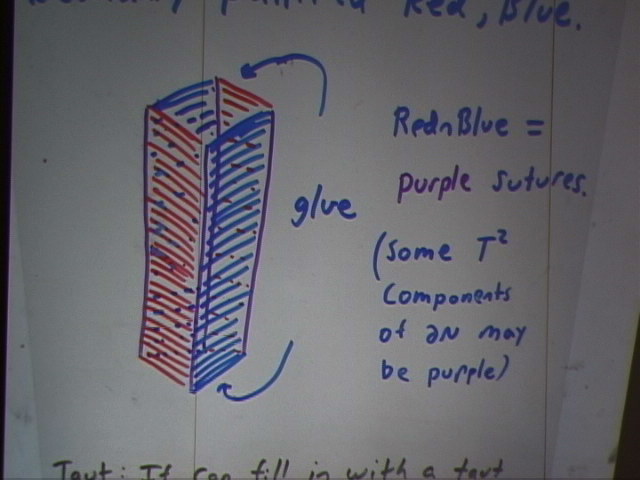 painted Red, Blue.
Red∩Blue =
purple sutures.
glue
(some T²
components
of ∂N may
be purple)
Taut: If can fill in with a taut